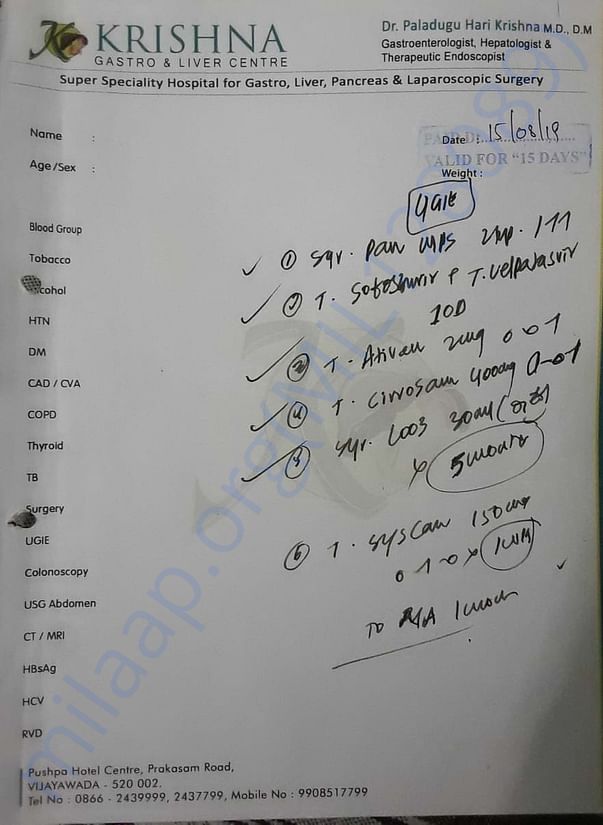 KRISHNA
GASTRO & LIVER CENTRE
Dr. Paladugu Hari Krishna M.D., D.M
Gastroenterologist, Hepatologist &
Therapeutic Endoscopist
Super Speciality Hospital for Gastro, Liver, Pancreas & Laparoscopic Surgery
Name :
Date : 15/08/19
VALID FOR "15 DAYS"
Age/Sex :
Weight :
Blood Group
Tobacco
① Syr. Pan MPS 2tsp. 111
cohol
② T. Sofosbuvir & T. Velpatasvir
10D
HTN
DM
③ T. Ativan 2mg 0 0 1
CAD / CVA
④ T. Cirrosam 400mg 0-01
COPD
Syr. Loos 30ml
Thyroid
5 months
TB
Surgery
UGIE
⑥ T. Syscan 150mg
0 1 0 x
Colonoscopy
USG Abdomen
To 1 month
CT / MRI
HBsAg
HCV
RVD
Pushpa Hotel Centre, Prakasam Road,
VIJAYAWADA - 520 002.
Tel No : 0866 - 2439999, 2437799, Mobile No : 9908517799
milaap.org